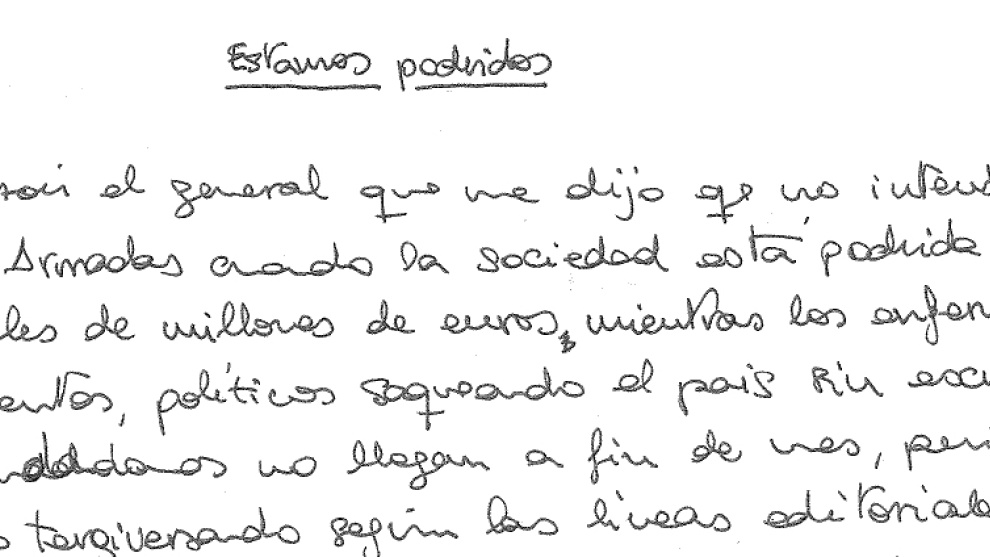 Estamos podridos
el general que me dijo que no intend
Armadas cuando la sociedad está podrida
les de millones de euros, mientras los enfer
entos, políticos saqueando el país sin escr
dadanos no llegan a fin de mes, peri
s tergiversando según las líneas editoriale